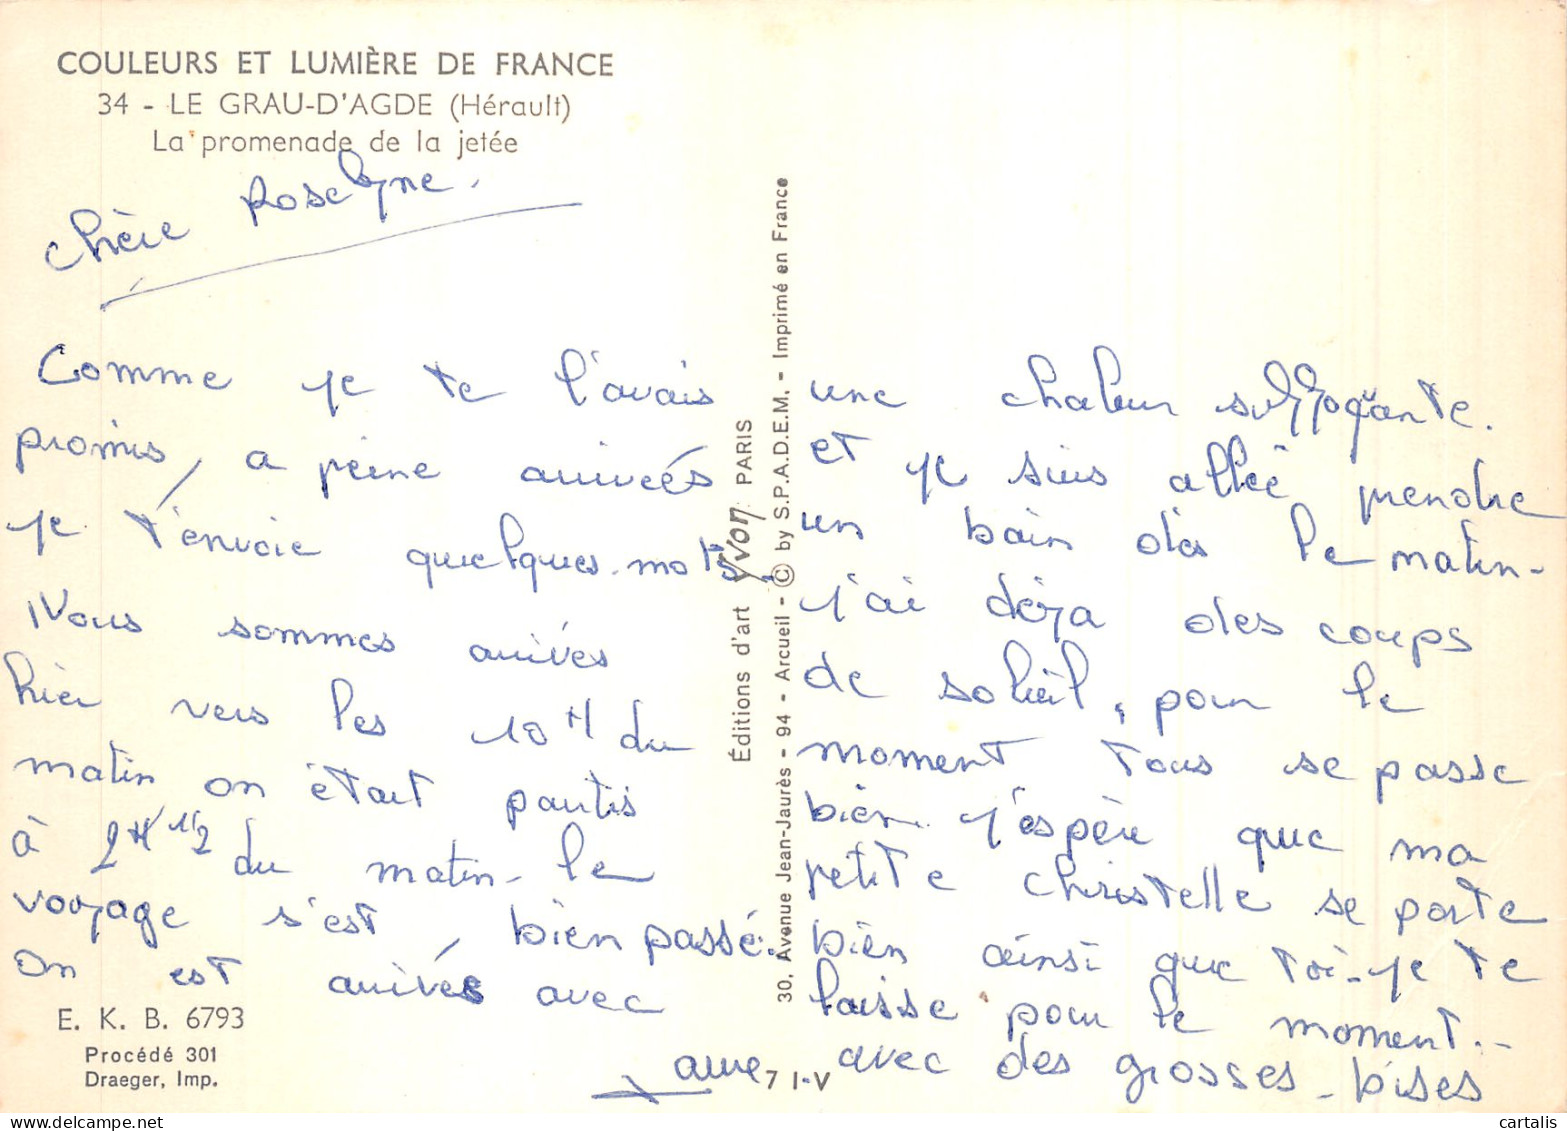 COULEURS ET LUMIÈRE DE FRANCE
34 - LE GRAU-D'AGDE (Hérault)
La promenade de la jetée
Chère Roselyne.
Comme je te l'avais
promis, a peine arrivées
je t'envoie quelques mots.
Nous sommes arrivés
hier vers les 10H du
matin on était partis
à 2H 1/2 du matin - le
vooyage s'est bien passé.
On est arrivés avec
une chaleur suffoqante.
et je suis allée prendre
un bain dès le matin -
j'ai déja des coups
de soleil, pour le
moment tous se passe
bien. j'espère que ma
petite christelle se porte
bien ainsi que toi - je te
laisse pour le moment..
avec des grosses bises
E. K. B. 6793
Procédé 301
Draeger, Imp.
Éditions d'art yvon PARIS
30, Avenue Jean-Jaurès - 94 - Arcueil - © by S.P.A.D.E.M. - Imprimé en France
7 I-V
cartalis